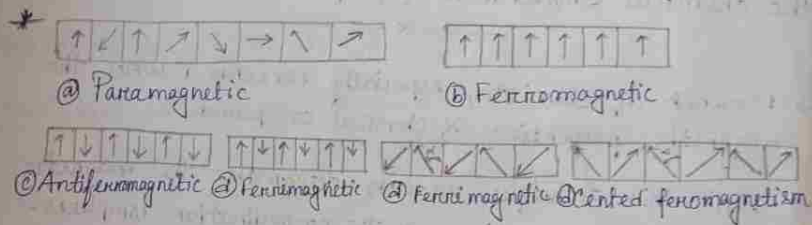 ⓐ Paramagnetic
ⓑ Ferromagnetic
ⓒ Antiferromagnetic ⓓ Ferrimagnetic ⓓ Ferrimagnetic ⓓ Cented feromagnetism